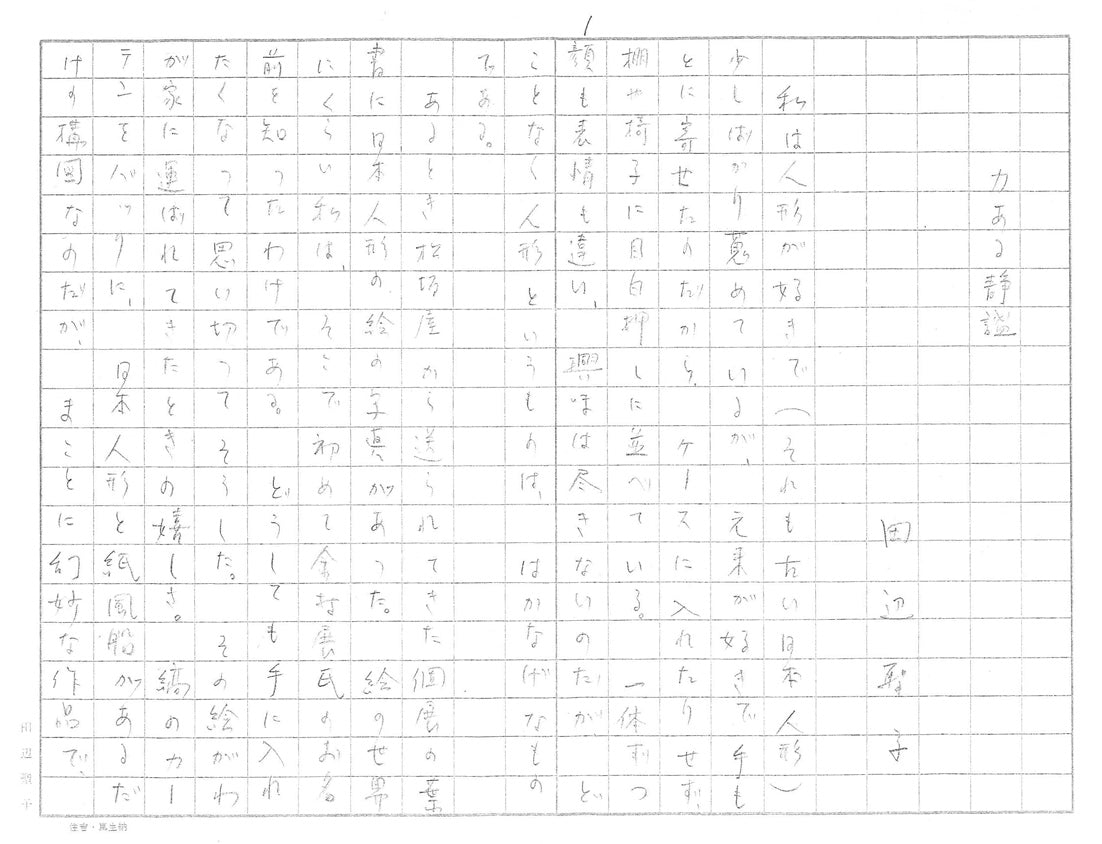 1
力ある静謐
田辺聖子
私は人形が好きで(それも古い日本人形)
少しばかり蒐めているが、元来が好きで手も
とに寄せたのだから、ケースに入れたりせず、
棚や椅子に目白押しに並べている。一体ずつ
顔も表情も違い、興味は尽きないのだが、ど
ことなく人形というものは、はかなげなもの
である。
あるとき松坂屋から送られてきた個展の葉
書に日本人形の絵の写真があった。絵の世界
にくらい私は、そこで初めて展氏のお名
前を知ったわけである。どうしても手に入れ
たくなって思い切ってそうした。その絵がわ
が家に運ばれてきたときの嬉しさ。縞のカー
テンをバックに、日本人形と紙風船があるだ
けの構図なのだが、まことに幻妙な作品で、
田辺聖子